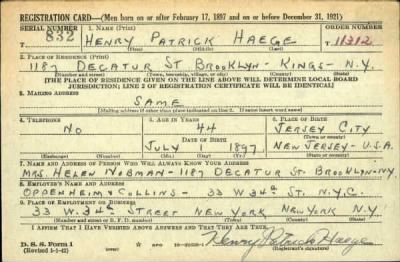 REGISTRATION CARD—(Men born on or after February 17, 1897 and on or before December 31, 1921)
SERIAL NUMBER 1. NAME (Print) ORDER NUMBER
832 HENRY PATRICK HAEGE 11312
(First) (Middle) (Last)
2. PLACE OF RESIDENCE (Print)
1187 DECATUR ST BROOKLYN - KINGS - N.Y.
(Number and street) (Town, township, village, or city) (County) (State)
[THE PLACE OF RESIDENCE GIVEN ON THE LINE ABOVE WILL DETERMINE LOCAL BOARD
JURISDICTION; LINE 2 OF REGISTRATION CERTIFICATE WILL BE IDENTICAL]
3. MAILING ADDRESS
SAME
[Mailing address if other than place indicated on line 2. If same insert word same]
4. TELEPHONE 5. AGE IN YEARS 6. PLACE OF BIRTH
NO 44 JERSEY CITY
DATE OF BIRTH (Town or county)
JULY 1 1897 NEW JERSEY - U.S.A.
(Exchange) (Number) (Mo.) (Day) (Yr.) (State or country)
7. NAME AND ADDRESS OF PERSON WHO WILL ALWAYS KNOW YOUR ADDRESS
MRS. HELEN NOBMAN - 1187 DECATUR ST. BROOKLYN - N.Y.
8. EMPLOYER'S NAME AND ADDRESS
OPPENHEIM & COLLINS - 33 W 34th ST. N.Y.C.
9. PLACE OF EMPLOYMENT OR BUSINESS
33 W. 34th STREET NEW YORK NEW YORK N.Y.
(Number and street or R. F. D. number) (Town) (County) (State)
I AFFIRM THAT I HAVE VERIFIED ABOVE ANSWERS AND THAT THEY ARE TRUE.
D. S. S. Form 1
(Revised 4-1-42) (over) Henry Patrick Haege
(Registrant's signature)